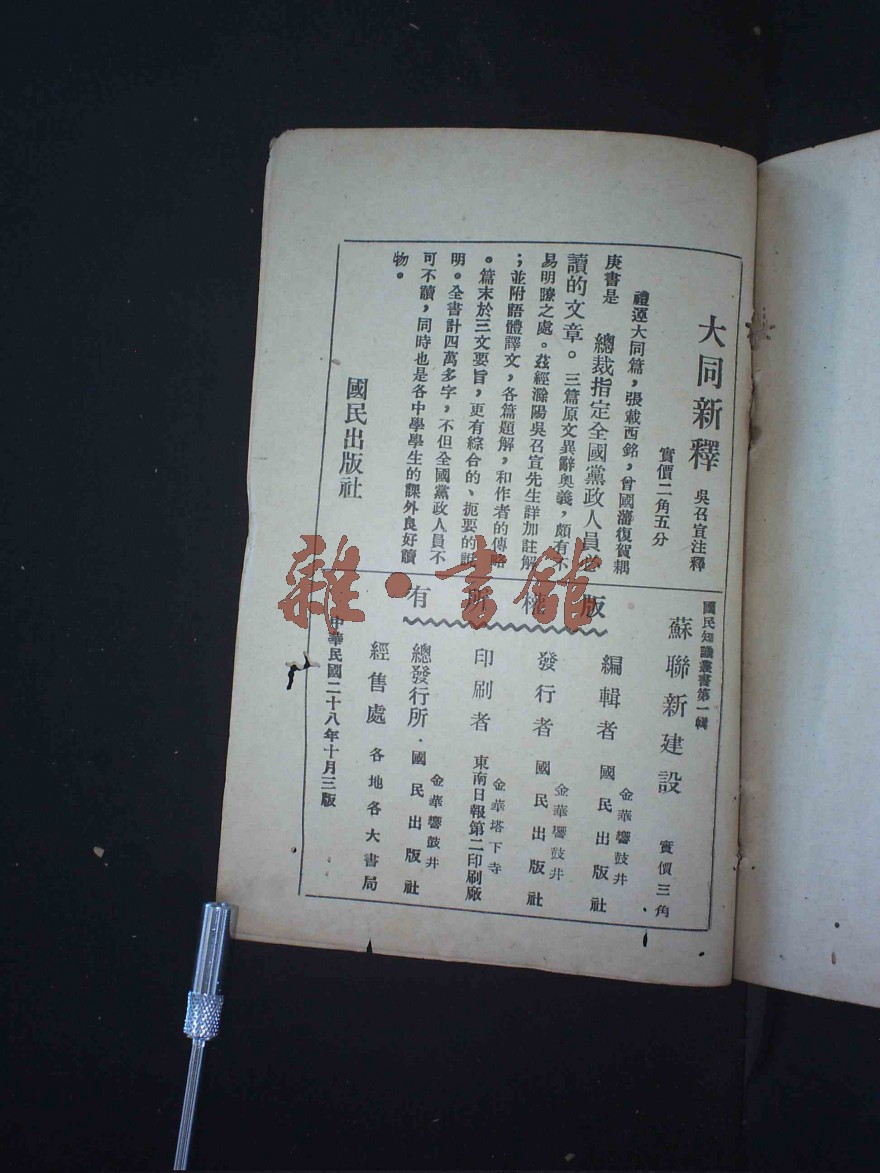 大同新釋 吳召宣注釋
實價二角五分
禮運大同篇，張載西銘，曾國藩復賀耦
庚書是 總裁指定全國黨政人員必
讀的文章。三篇原文異辭奧義，頗有不
易明瞭之處。茲經滁陽吳召宣先生詳加註解
；並附語體譯文，各篇題解，和作者的傳略
。篇末於三文要旨，更有綜合的、扼要的說
明。全書計四萬多字，不但全國黨政人員不
可不讀，同時也是各中學學生的課外良好讀
物。
國民出版社
國民知識叢書第一輯
蘇聯新建設 實價三角
版權所有
編輯者 國民出版社
金華響鼓井
發行者 國民出版社
金華響鼓井
印刷者 東南日報第二印刷廠
金華塔下寺
總發行所 國民出版社
金華響鼓井
經售處 各地各大書局
中華民國二十八年十月三版
雜·書館